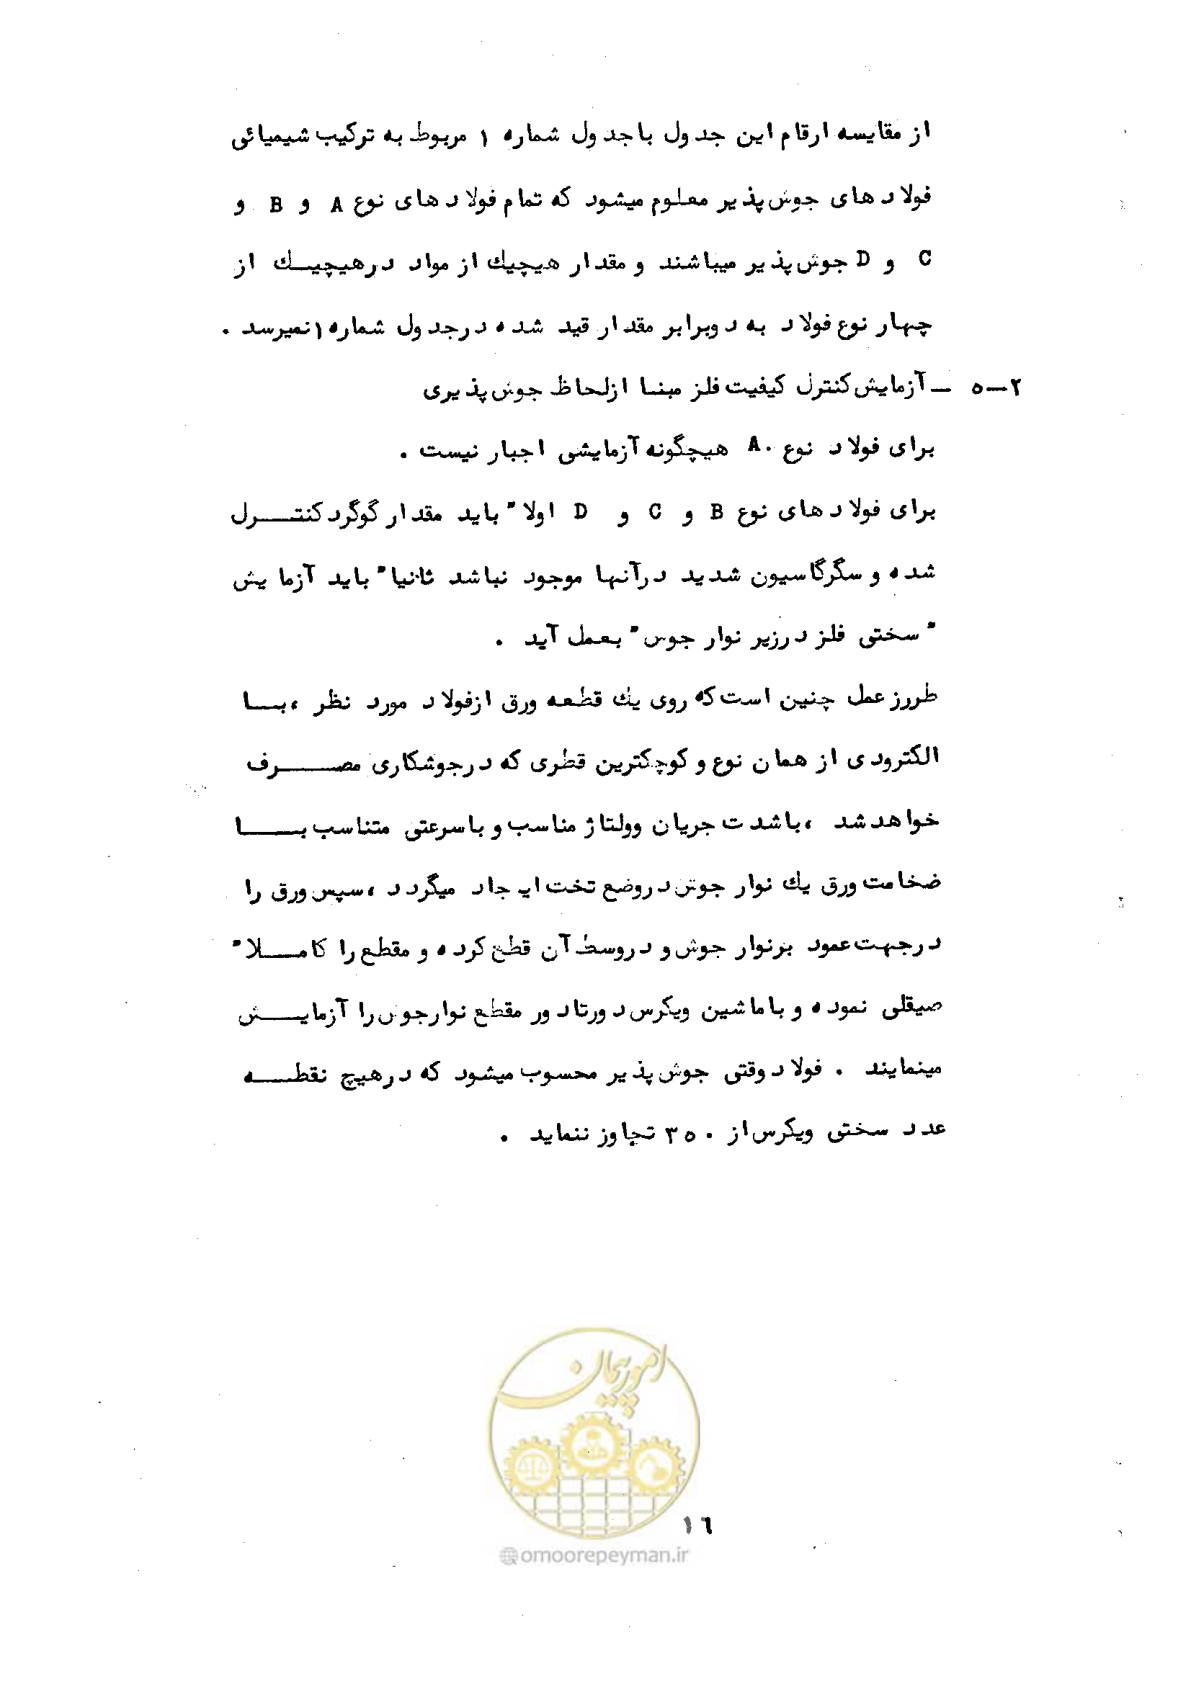 از مقایسه ارقام این جدول با جدول شماره ۱ مربوط به ترکیب شیمیائی
فولادهای جوش‌پذیر معلوم میشود که تمام فولادهای نوع A و B و
C و D جوش‌پذیر میباشند و مقدار هیچیك از مواد درهیچیــك از
چهار نوع فولاد به دوبرابر مقدار قید شده درجدول شماره ۱ نمیرسد .
۲-۵ - آزمایش کنترل کیفیت فلز مبنـا ازلحاظ جوش‌پذیری
برای فولاد نوع A. هیچگونه آزمایشی اجبار نیست .
برای فولادهای نوع B و C و D اولا" باید مقدار گوگرد کنتـــرل
شده و سگرگاسیون شدید درآنها موجود نباشد ثانیا" باید آزمایش
"سختی فلز درزیر نوار جوش" بعمل آید .
طررز عمل چنین است که روی یك قطعه ورق ازفولاد مورد نظر ،بــا
الکترودی از همان نوع و کوچکترین قطری که درجوشکاری مصـــرف
خواهد شد ،باشدت جریان وولتاژ مناسب و باسرعتی متناسب بـــا
ضخامت ورق یك نوار جوش دروضع تخت ایجاد میگردد ،سپس ورق را
درجهت عمود برنوار جوش و دروسط آن قطع کرده و مقطع را کامــلا"
صیقلی نموده و باماشین ویکرس دورتادور مقطع نوارجوش را آزمایــش
مینمایند . فولاد وقتی جوش‌پذیر محسوب میشود که درهیچ نقطــه
عدد سختی ویکرس از ۳۵۰ تجاوز ننماید .
امور پیمان
۱٦
@omoorepeyman.ir